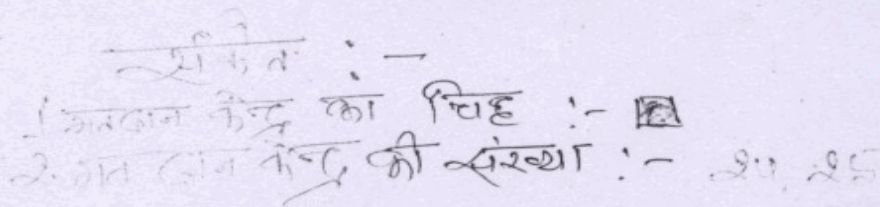 संकेत :-
1. मतदान केन्द्र का चिह्न :-
2. मतदान केन्द्र की संख्या :- २५, २६